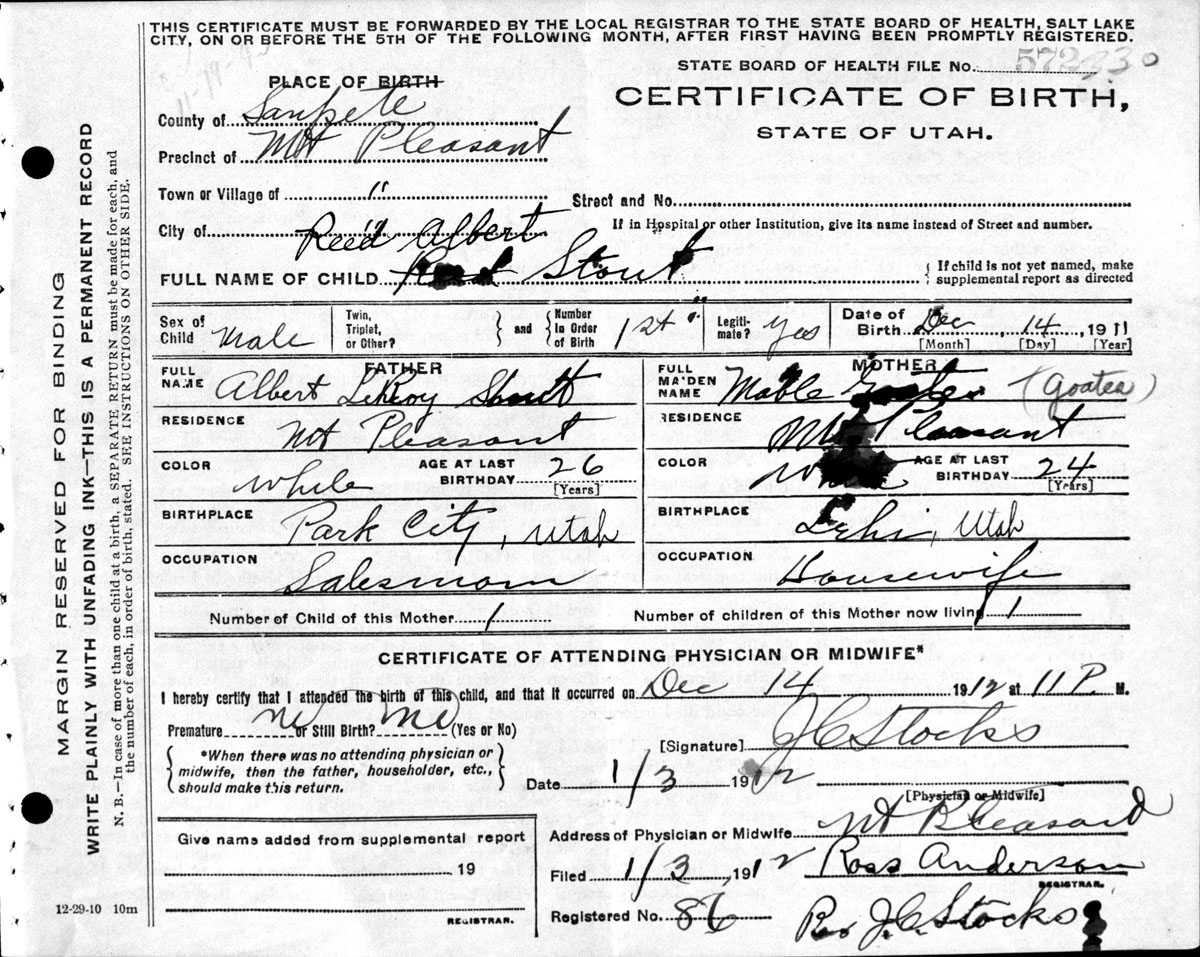 THIS CERTIFICATE MUST BE FORWARDED BY THE LOCAL REGISTRAR TO THE STATE BOARD OF HEALTH, SALT LAKE
CITY, ON OR BEFORE THE 5TH OF THE FOLLOWING MONTH, AFTER FIRST HAVING BEEN PROMPTLY REGISTERED.
STATE BOARD OF HEALTH FILE No. 572330
PLACE OF BIRTH
CERTIFICATE OF BIRTH,
STATE OF UTAH.
County of Sanpete
Precinct of Mt Pleasant
Town or Village of "
Street and No.
City of
If in Hospital or other Institution, give its name instead of Street and number.
Reed Albert
FULL NAME OF CHILD Stout
{ If child is not yet named, make
supplemental report as directed
Sex of Child Male
Twin, Triplet, or Other? } and { Number In Order of Birth 1st
Legiti- mate? Yes
Date of Birth Dec 14 1911
[Month] [Day] [Year]
FATHER
FULL NAME Albert LeRoy Stout
RESIDENCE Mt Pleasant
COLOR White AGE AT LAST BIRTHDAY 26
[Years]
BIRTHPLACE Park City, Utah
OCCUPATION Salesmom
MOTHER
FULL MAIDEN NAME Mable (Goates)
RESIDENCE Mt Pleasant
COLOR AGE AT LAST BIRTHDAY 24
[Years]
BIRTHPLACE Lehi, Utah
OCCUPATION Housewife
Number of Child of this Mother 1
Number of children of this Mother now living 1
CERTIFICATE OF ATTENDING PHYSICIAN OR MIDWIFE*
I hereby certify that I attended the birth of this child, and that it occurred on Dec 14 1912 at 11 P. M.
Premature No or Still Birth? No (Yes or No)
[Signature] J C Stocks
{ *When there was no attending physician or
midwife, then the father, householder, etc.,
should make this return. }
Date 1/3 1912
[Physician or Midwife]
Give name added from supplemental report
19
REGISTRAR.
Address of Physician or Midwife Mt Pleasant
Filed 1/3 1912 Ross Anderson
REGISTRAR.
Registered No. 86 J.C. Stocks
12-29-10 10m
MARGIN RESERVED FOR BINDING
WRITE PLAINLY WITH UNFADING INK—THIS IS A PERMANENT RECORD
N. B.—In case of more than one child at a birth, a SEPARATE RETURN must be made for each, and
the number of each, in order of birth, stated. SEE INSTRUCTIONS ON OTHER SIDE.